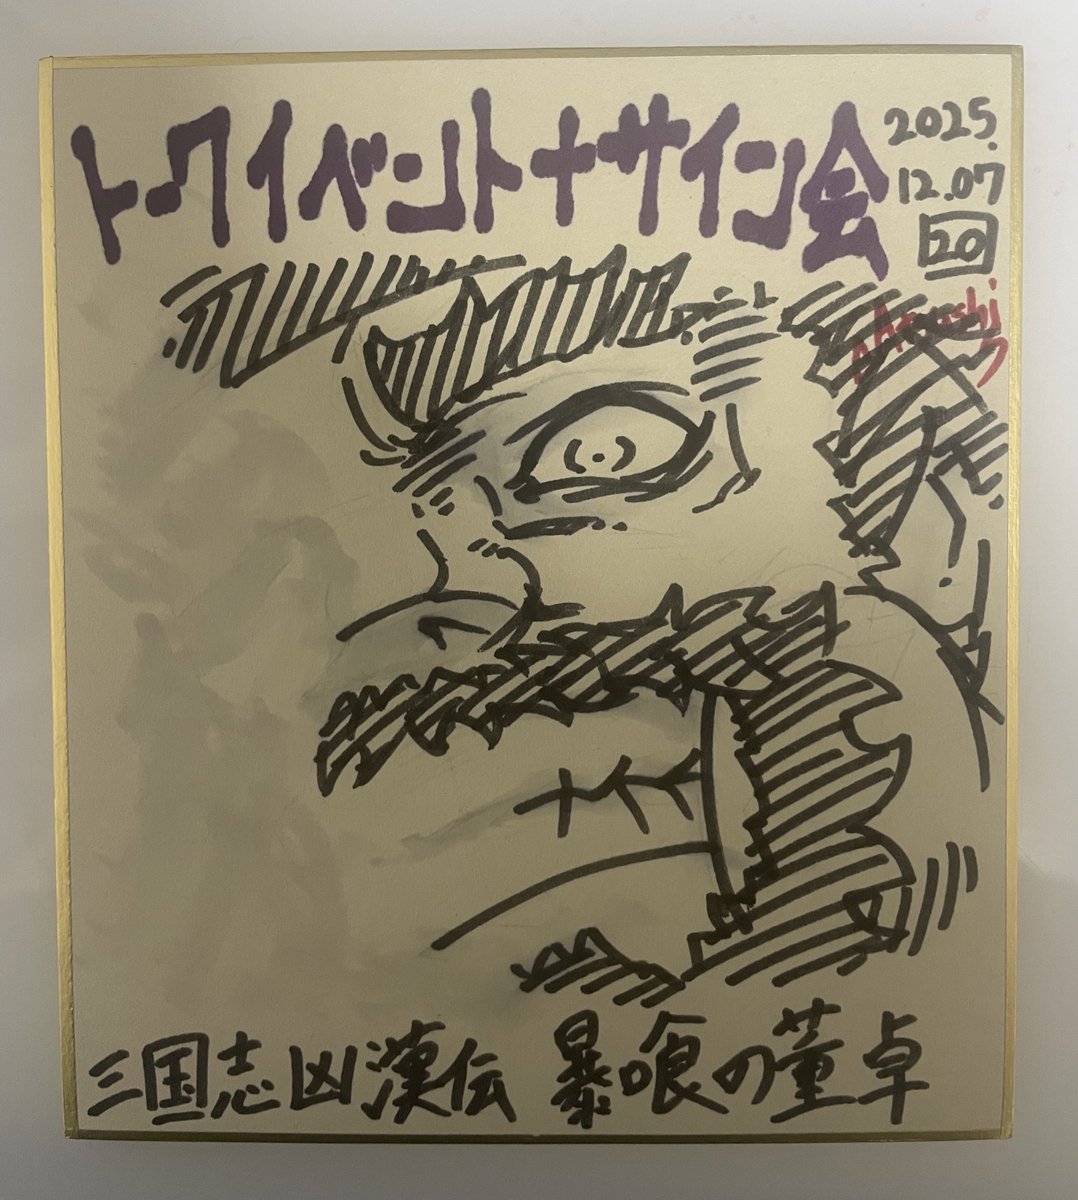 トークイベント+サイン会
2025.
12.07
20
三国志凶漢伝 暴喰の董卓